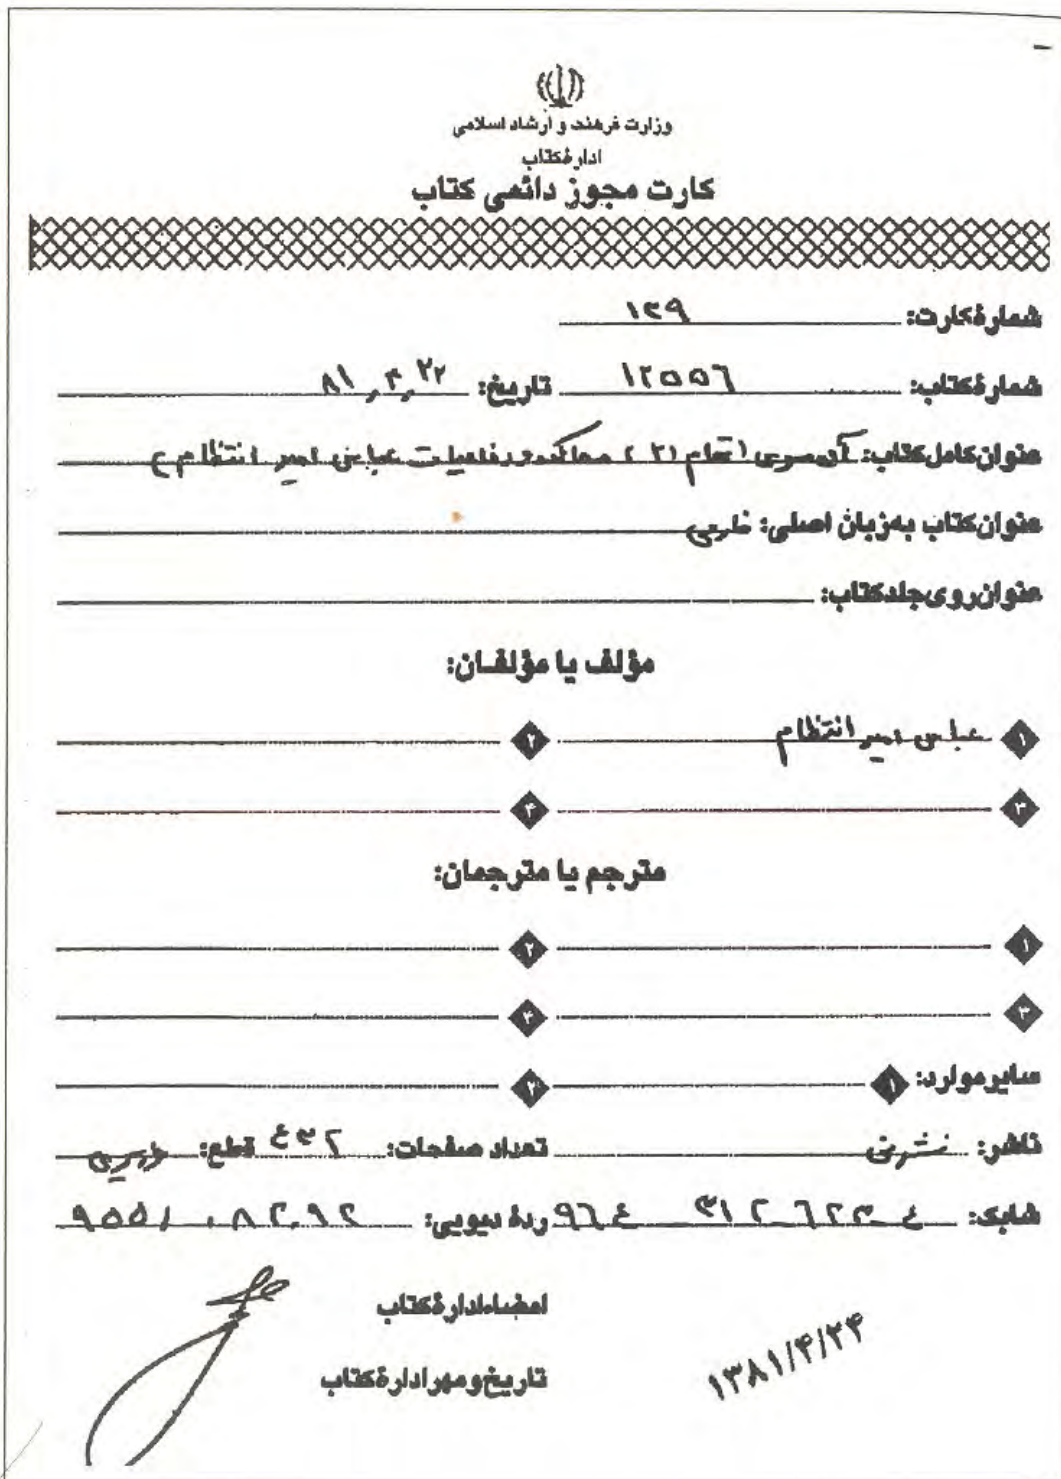 وزارت فرهنگ و ارشاد اسلامی
ادارهٔ کتاب
کارت مجوز دائمی کتاب
شمارهٔ کارت: ۱۳۹
شمارهٔ کتاب: ۱۲۵۵۶ تاریخ: ۸۱٫۴٫۲۲
عنوان کامل کتاب: آن سوی اتهام (۲) محاکمه و دفاعیات عباس امیر انتظام)
عنوان کتاب به زبان اصلی: فارسی
عنوان روی جلد کتاب:
مؤلف یا مؤلفان:
۱ عباس امیر انتظام ۲
۳ ۴
مترجم یا مترجمان:
۱ ۲
۳ ۴
سایر موارد: ۱ ۲
ناشر: نشر نی تعداد صفحات: ۴۳۲ قطع:
شابک: ۹۶۴ ۳۱۲ ۶۲۳ ۴ ردهٔ دیویی: ۹۵۵/۰۸۲۰۹۲
امضاء ادارهٔ کتاب
تاریخ و مهر ادارهٔ کتاب
۱۳۸۱/۴/۲۴